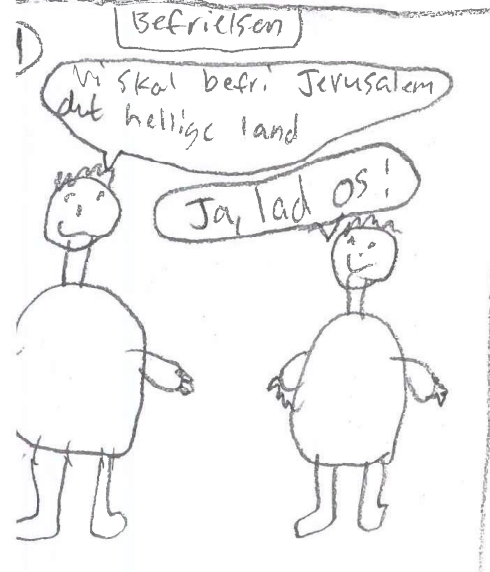 Befrielsen
1
Vi skal befri Jerusalem
det hellige land
Ja, lad os!